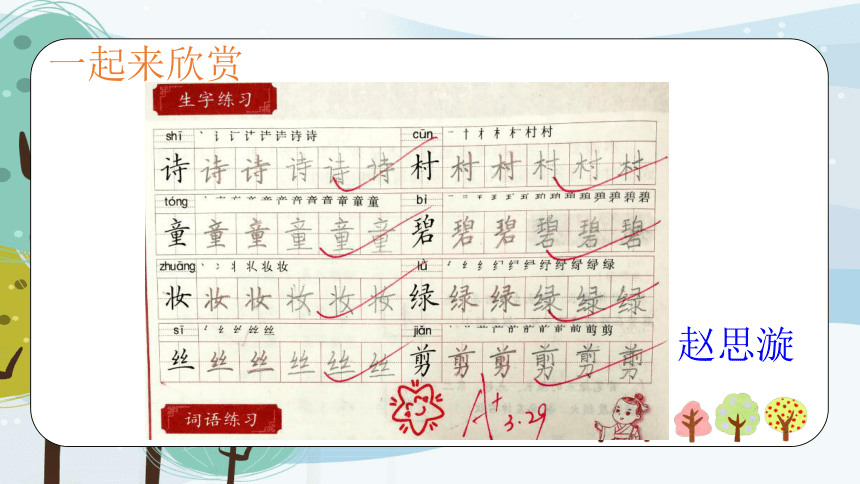 一起来欣赏
生字练习
shī cūn
诗 诗 诗 诗 诗 诗 村 村 村 村 村 村
tóng bì
童 童 童 童 童 童 碧 碧 碧 碧 碧 碧
zhuāng lǜ
妆 妆 妆 妆 妆 妆 绿 绿 绿 绿 绿 绿
sī jiǎn
丝 丝 丝 丝 丝 丝 剪 剪 剪 剪 剪 剪
赵思漩
词语练习
A+
3.29